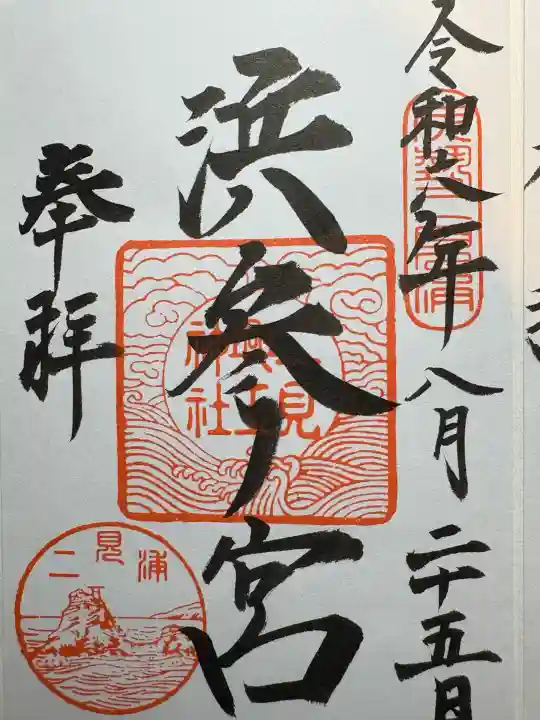 令和六年八月二十五日
浜参ノ宮
奉拝
二見興玉神社
二見浦